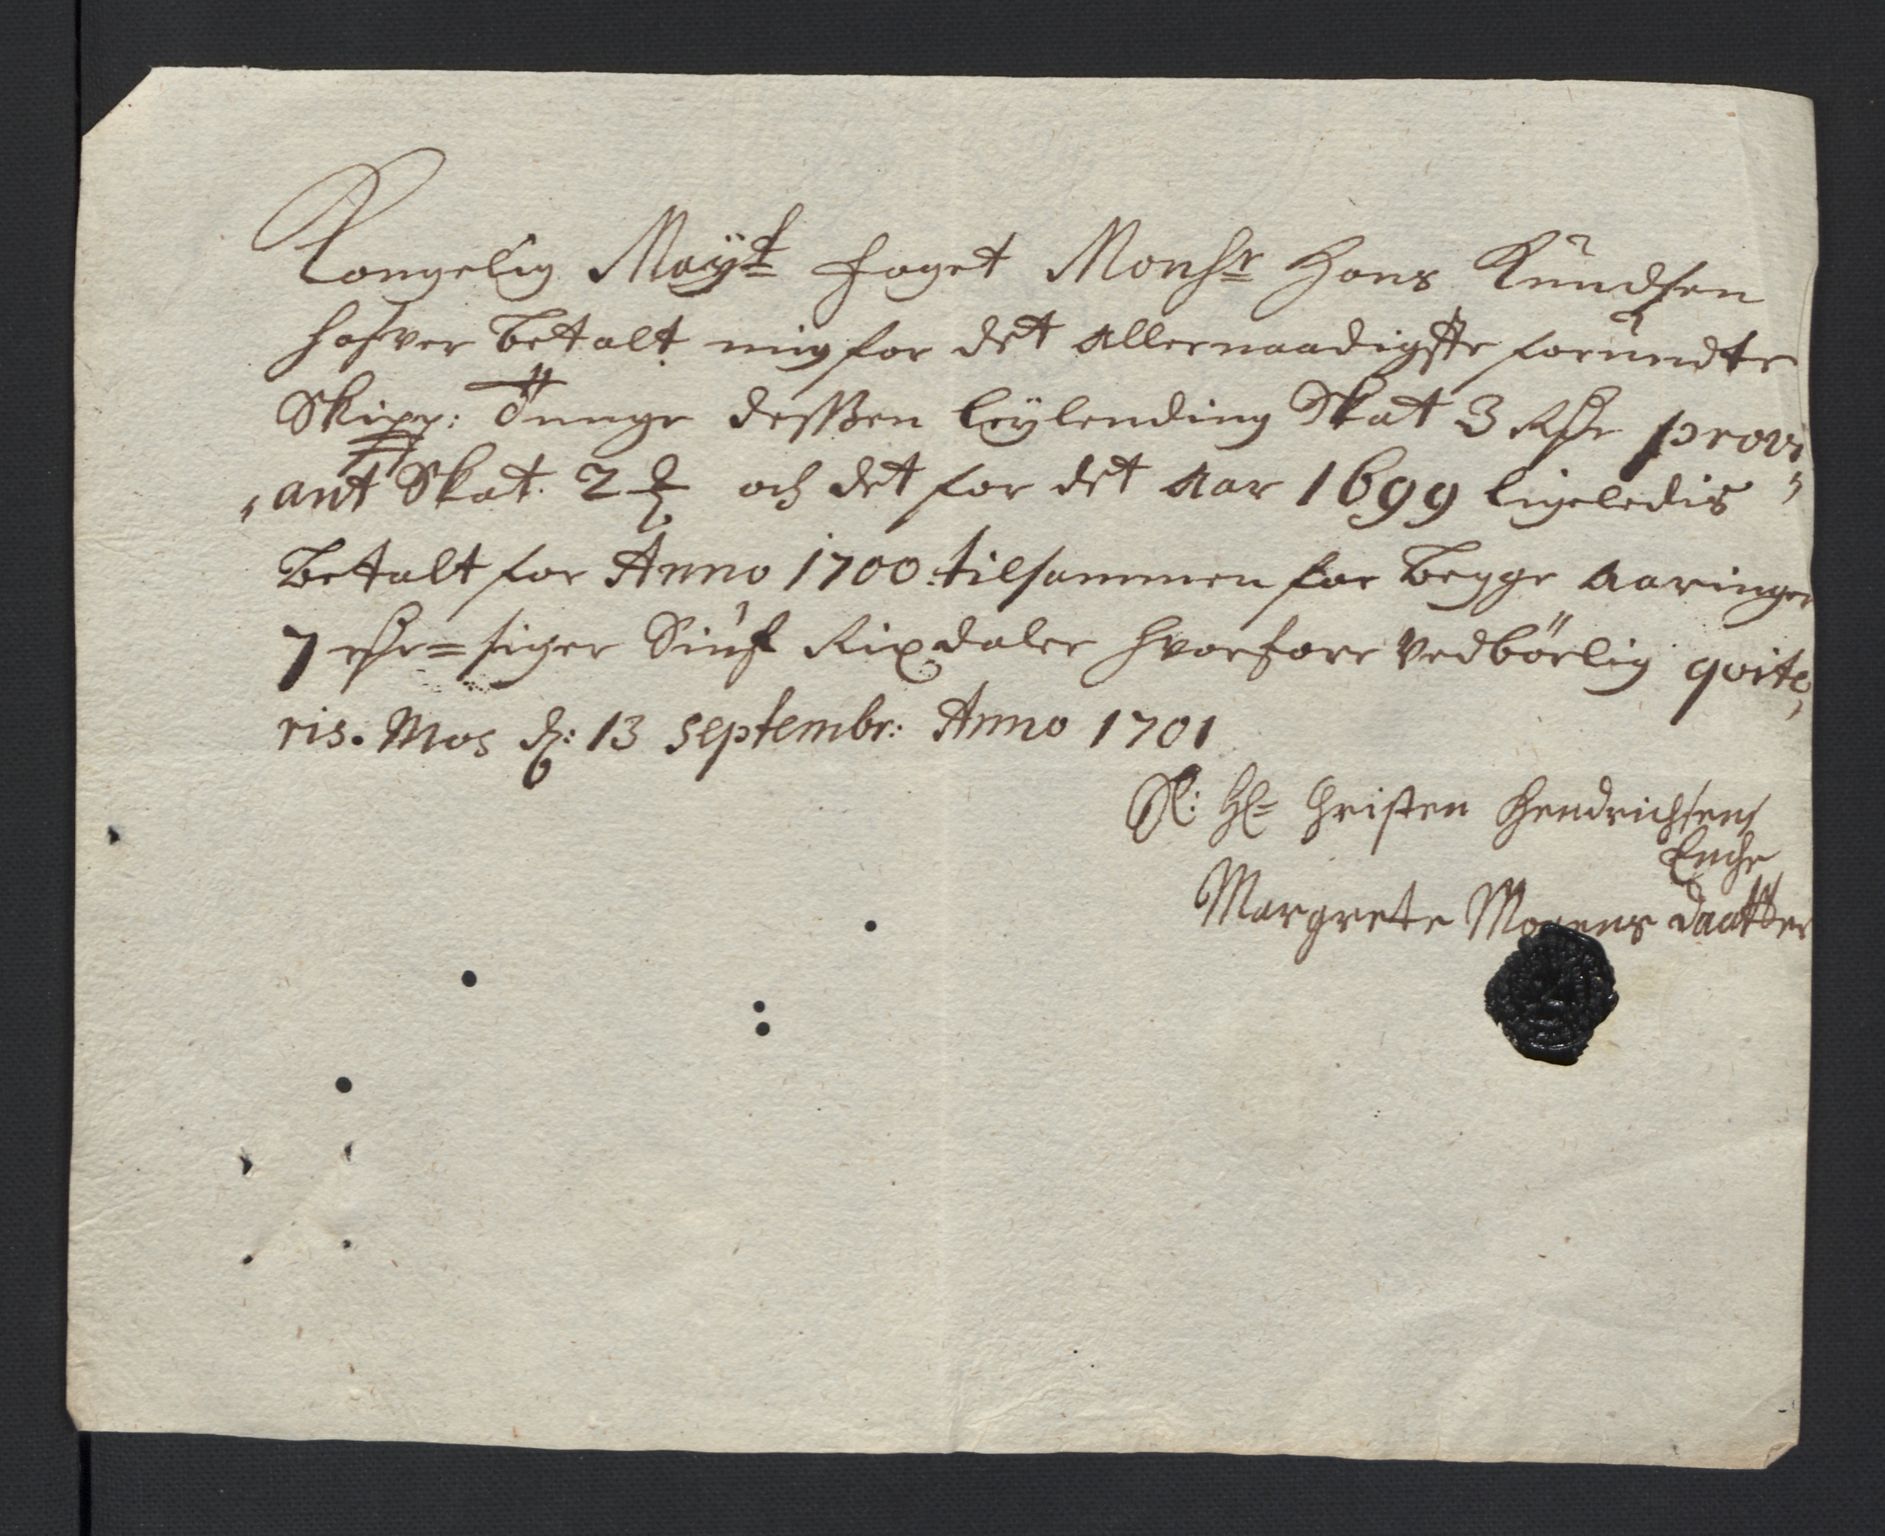 Kongelig Mayt foget Monsr Hans Knudsen
hafver betalt mig for det allernaadigste forundte
Skipp: Tunge dessßen leylending Skat 3 Rdr provi
ant Skat. 2 och det for det Aar 1699 ligeledis
betalt for Anno 1700 tilsammen for begge aaringer
7 rdr = siger Siuf Rixdaler hvorfore vedbörlig qvite
ris. Mos d: 13 Septembr: Anno 1701
Sl: Hr Christen Hendrichsens
Enche
Margrete Mogens daatter